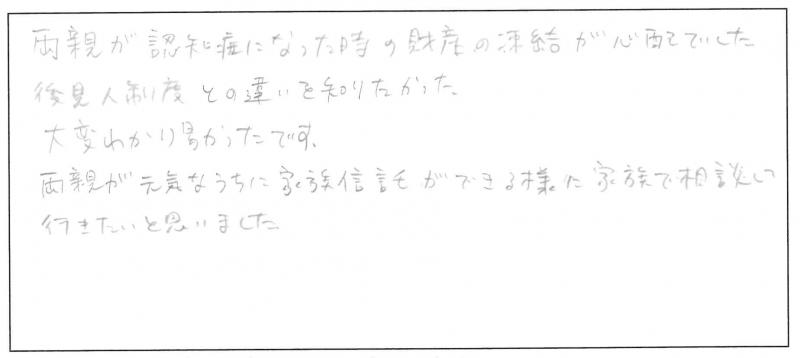 両親が認知症になった時の財産の凍結が心配でした
後見人制度との違いを知りたかった。
大変わかり易かったです。
両親が元気なうちに家族信託ができる様に家族で相談して
行きたいと思いました